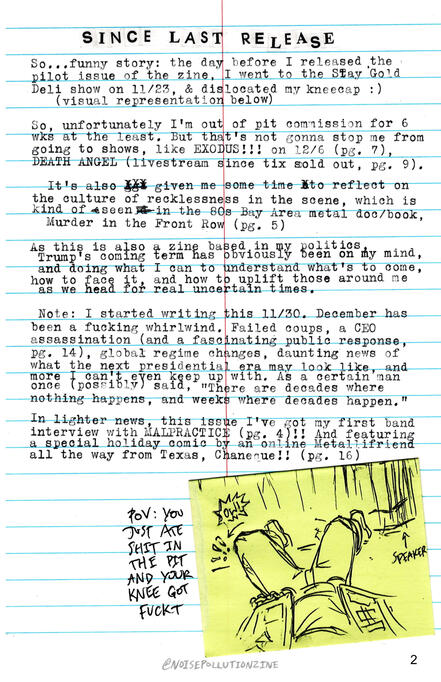 SINCE LAST RELEASE
So...funny story: the day before I released the
pilot issue of the zine, I went to the Stay Gold
Deli show on 11/23, & dislocated my kneecap :)
(visual representation below)
So, unfortunately I'm out of pit commission for 6
wks at the least. But that's not gonna stop me from
going to shows, like EXODUS!!! on 12/6 (pg. 7),
DEATH ANGEL (livestream since tix sold out, pg. 9).
It's also given me some time to reflect on
the culture of recklessness in the scene, which is
kind of seen in the 80s Bay Area metal doc/book,
Murder in the Front Row (pg. 5)
As this is also a zine based in my politics,
Trump's coming term has obviously been on my mind,
and doing what I can to understand what's to come,
how to face it, and how to uplift those around me
as we head for real uncertain times.
Note: I started writing this 11/30. December has
been a fucking whirlwind. Failed coups, a CEO
assassination (and a fascinating public response,
pg. 14), global regime changes, daunting news of
what the next presidential era may look like, and
more I can't even keep up with. As a certain man
once (possibly) said, "There are decades where
nothing happens, and weeks where decades happen."
In lighter news, this issue I've got my first band
interview with MALPRACTICE (pg. 4)!! And featuring
a special holiday comic by an online Metallifriend
all the way from Texas, Chaneque!! (pg. 16)
POV: YOU
JUST ATE
SHIT IN
THE PIT
AND YOUR
KNEE GOT
FUCKT
POW!
!?!?
SPEAKER
2
@NOISEPOLLUTIONZINE